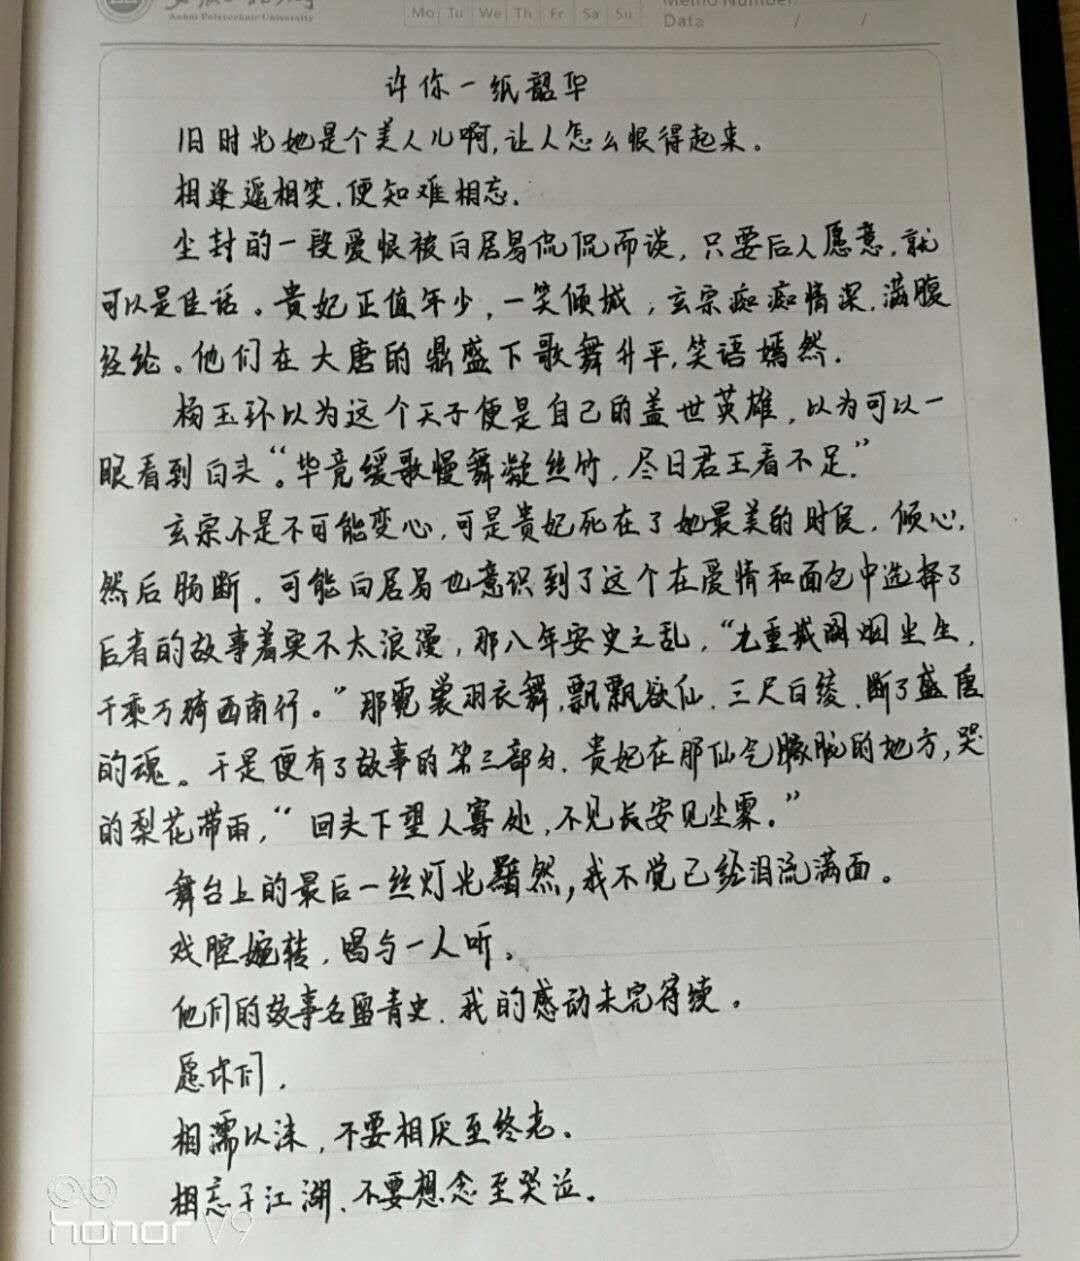 Anhui Polytechnic University
Mo Tu We Th Fr Sa Su
Memo Number.
Data / /
许你一纸韶华
旧时光她是个美人儿啊,让人怎么恨得起来。
相逢遥相笑,便知难相忘.
尘封的一段爱恨被白居易侃侃而谈,只要后人愿意,就
可以是佳话。贵妃正值年少,一笑倾城,玄宗痴痴情深,满腹
经纶。他们在大唐的鼎盛下歌舞升平,笑语嫣然.
杨玉环以为这个天子便是自己的盖世英雄,以为可以一
眼看到白头“。毕竟缓歌慢舞凝丝竹,尽日君王看不足.”
玄宗不是不可能变心,可是贵妃死在了她最美的时侯.倾心,
然后肠断.可能白居易也意识到了这个在爱情和面包中选择了
后者的故事着实不太浪漫,那八年安史之乱,“九重城阙烟尘生,
千乘万骑西南行。”那霓裳羽衣舞,飘飘欲仙.三尺白绫.断了盛唐
的魂。于是便有了故事的第三部分.贵妃在那仙气朦胧的地方,哭
的梨花带雨,“回头下望人寰处,不见长安见尘雾.”
舞台上的最后一丝灯光黯然,我不觉已经泪流满面。
戏腔婉转,唱与一人听。
他们的故事名留青史.我的感动未完待续。
愿你们.
相濡以沫,不要相厌至终老、
相忘于江湖、不要想念至哭泣.
honor V9